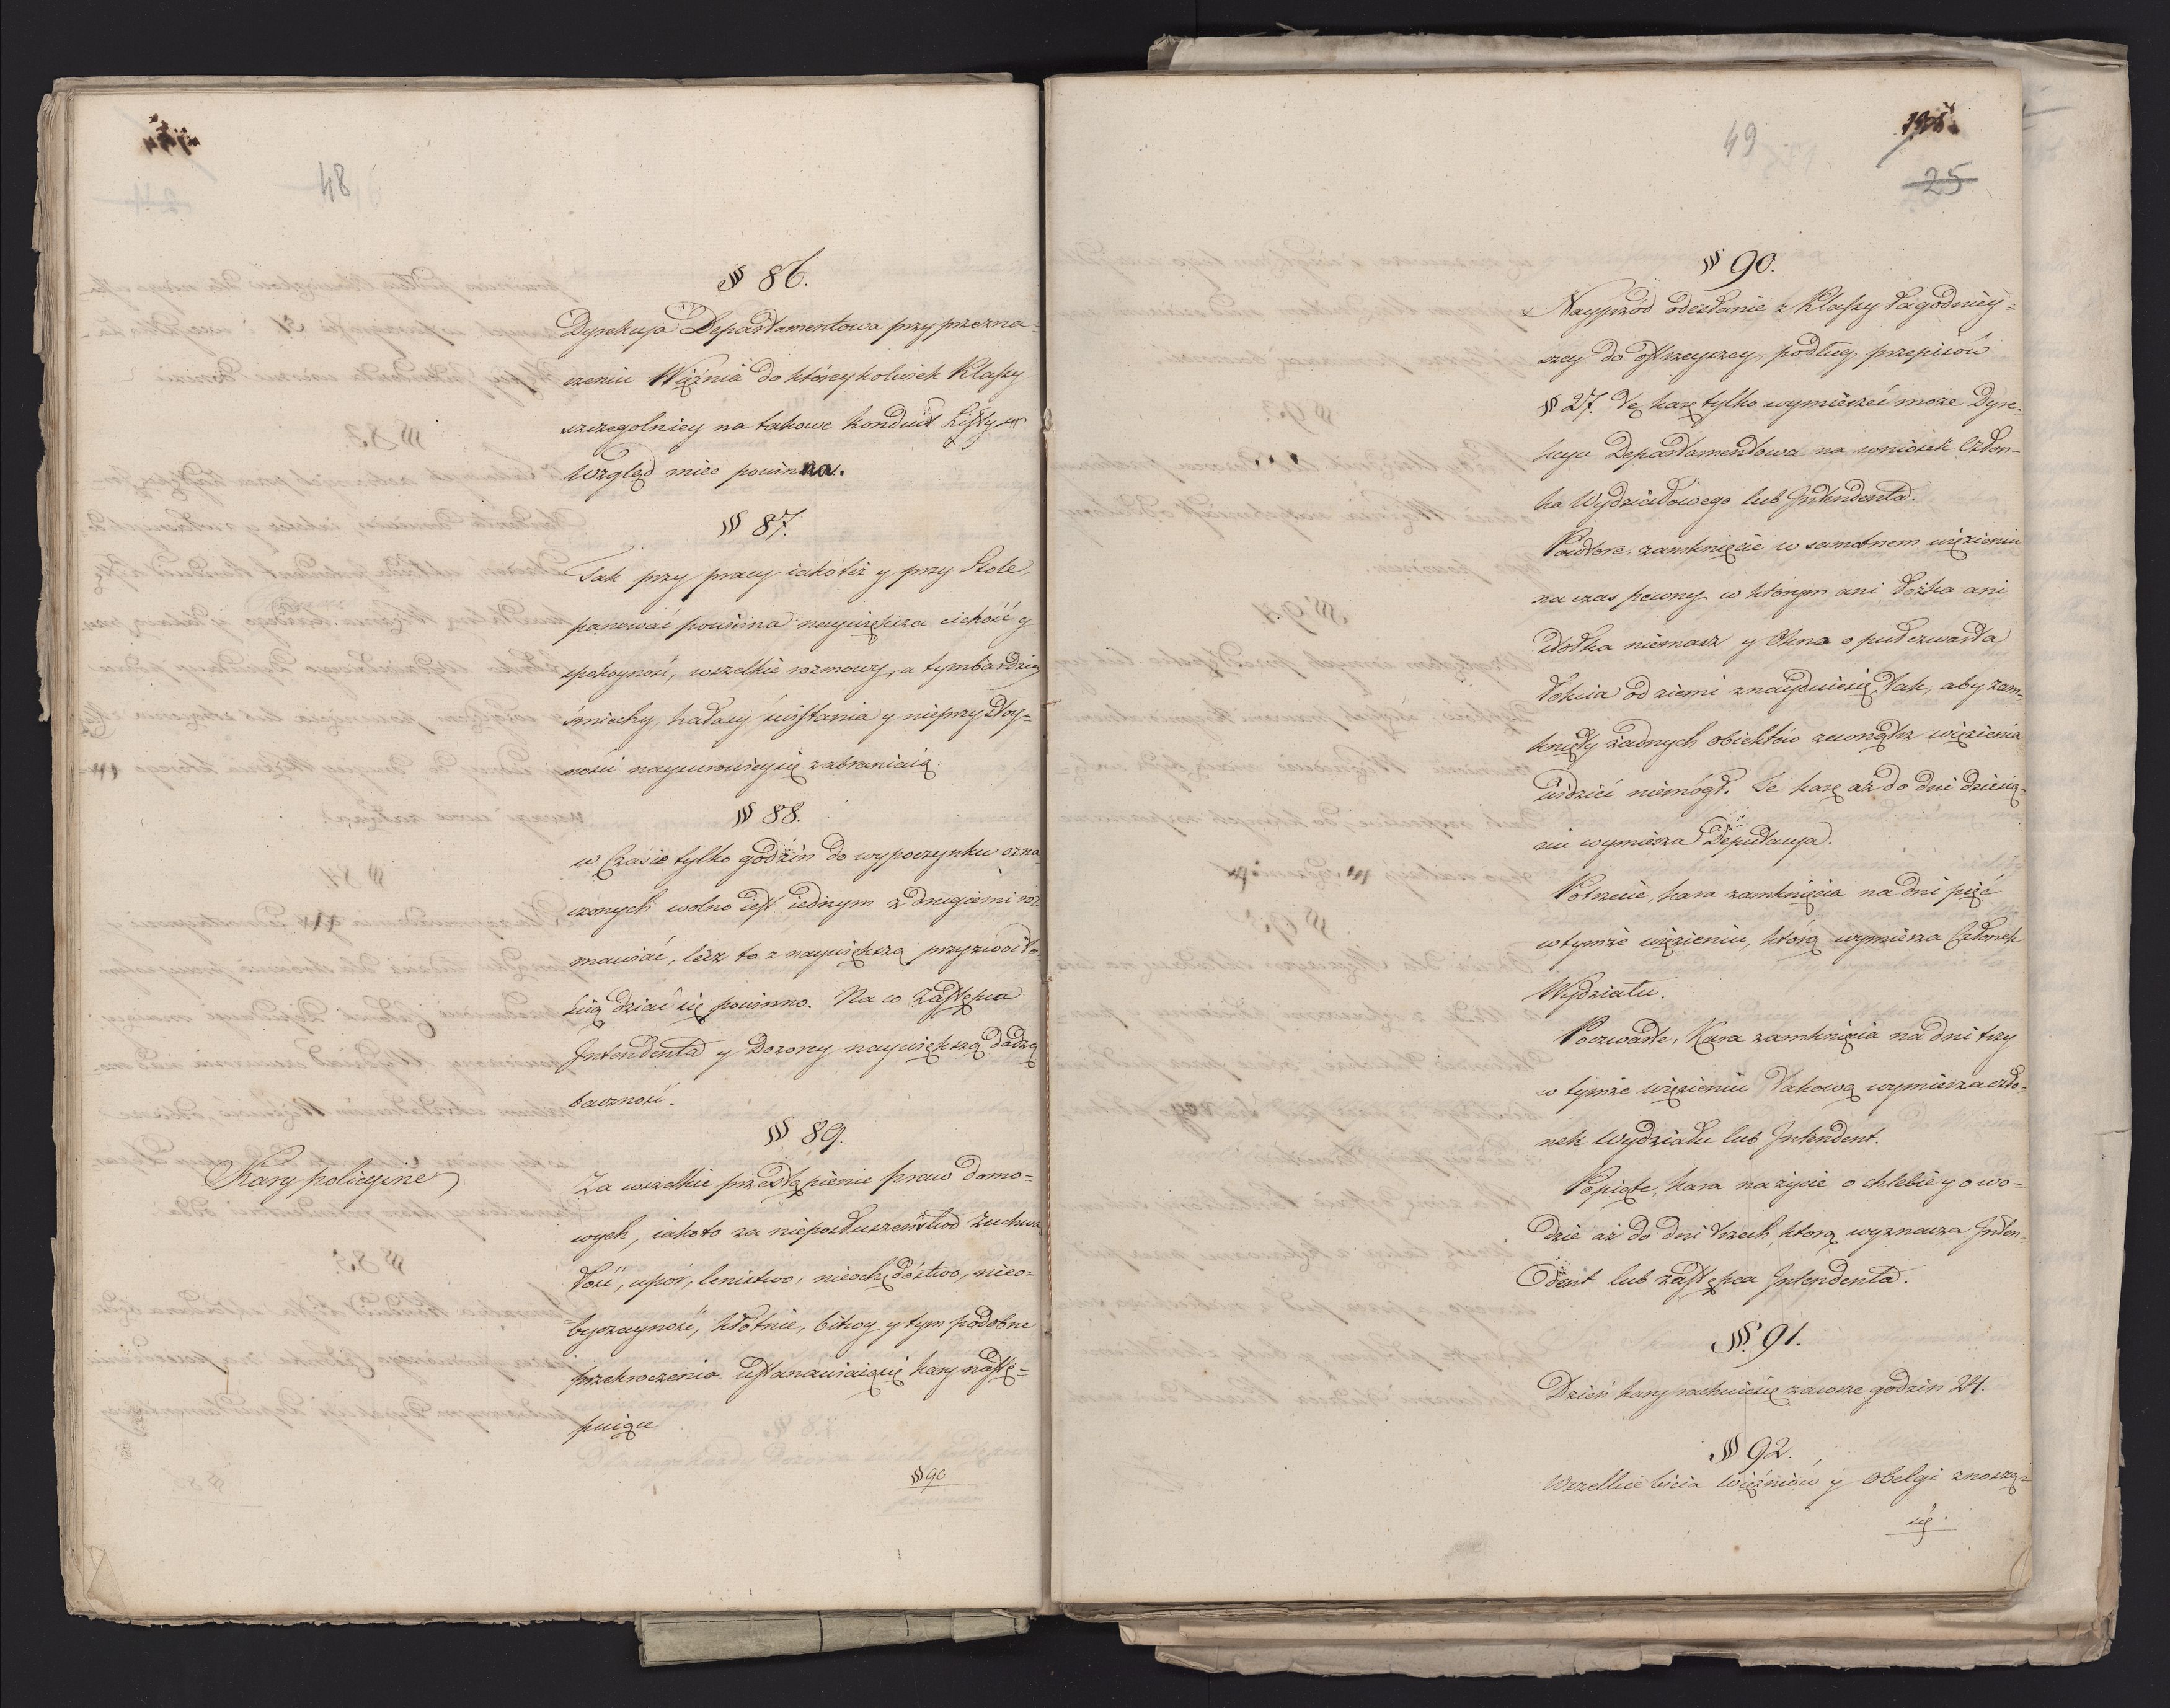 48
§ 86.
Dyrekcya Departamentowa przy przezna-
czeniu Więźnia do któreykolwiek Klassy
szczegolniey na takowe konduit Listy
wzgląd miec powinna.
§ 87.
Tak przy pracy iako też y przy Stole,
panować powinna naywiększa cichość y
spokoyność, wszelkie rozmowy, a tymbardziey
śmiechy, hałasy, świstania y nieprzystoy=
ności naysurowiey się zabraniaią.
§ 88.
w Czasie tylko godzin do wypoczynku ozna-
czonych wolno iest iednym z drugiemi roz-
mawiać, lecz to z naywiększą przyzwoito-
ścią dziać się powinno. Na co Zastępca
Intendenta y Dozorcy naywiększą dadzą
baczność.
§ 89.
Kary policyine
Za wszelkie przestąpienie praw domo=
wych, iakoto za nieposłuszeństwo zuchwa
łość, upor, lenistwo, nieochędóstwo, nieo=
byczayność, kłótnie, bitwy y tym podobne
przekroczenia ustanawiaią się kary nastę=
puiące
§ 90
49
25
§ 90.
Nayprzód odesłanie z Klassy łagodniey=
szey do ostrzeyszey, podług przepisów
§ 27. Tę karę tylko wymierzeć może Dyre-
kcya Departamentowa na wniosek Człon-
ka Wydziałowego lub Intendenta.
Powtore, zamknięcie w samotnem więzieniu
na czas pewny w którym ani łóżka ani
stołka niemasz y Okna o puł czwarta
łokcia od ziemi znayduie się, tak, aby zam-
knięty żadnych obiektów zewnątrz więzienia
widzieć niemógł. Te karę aż do dni dziesią-
ciu wymierza Deputacya.
Potrzecie, kara zamknięcia na dni pięć
w tymże więzieniu, którą wymierza Członek
Wydziału.
Poczwarte, Kara zamknięcia na dni trzy
w tymże więzieniu takową wymierza czło-
nek Wydziału lub Intendent.
Popiąte, kara na życie o chlebie y o wo-
dzie aż do dni trzech, ktorą wyznacza Inten-
dent lub zastępca Intendenta.
§ 91.
Dzień kary rachuie się zawsze godzin 24.
§ 92.
Wszelkie bicia Więźniów y obelgi znoszą=
się.